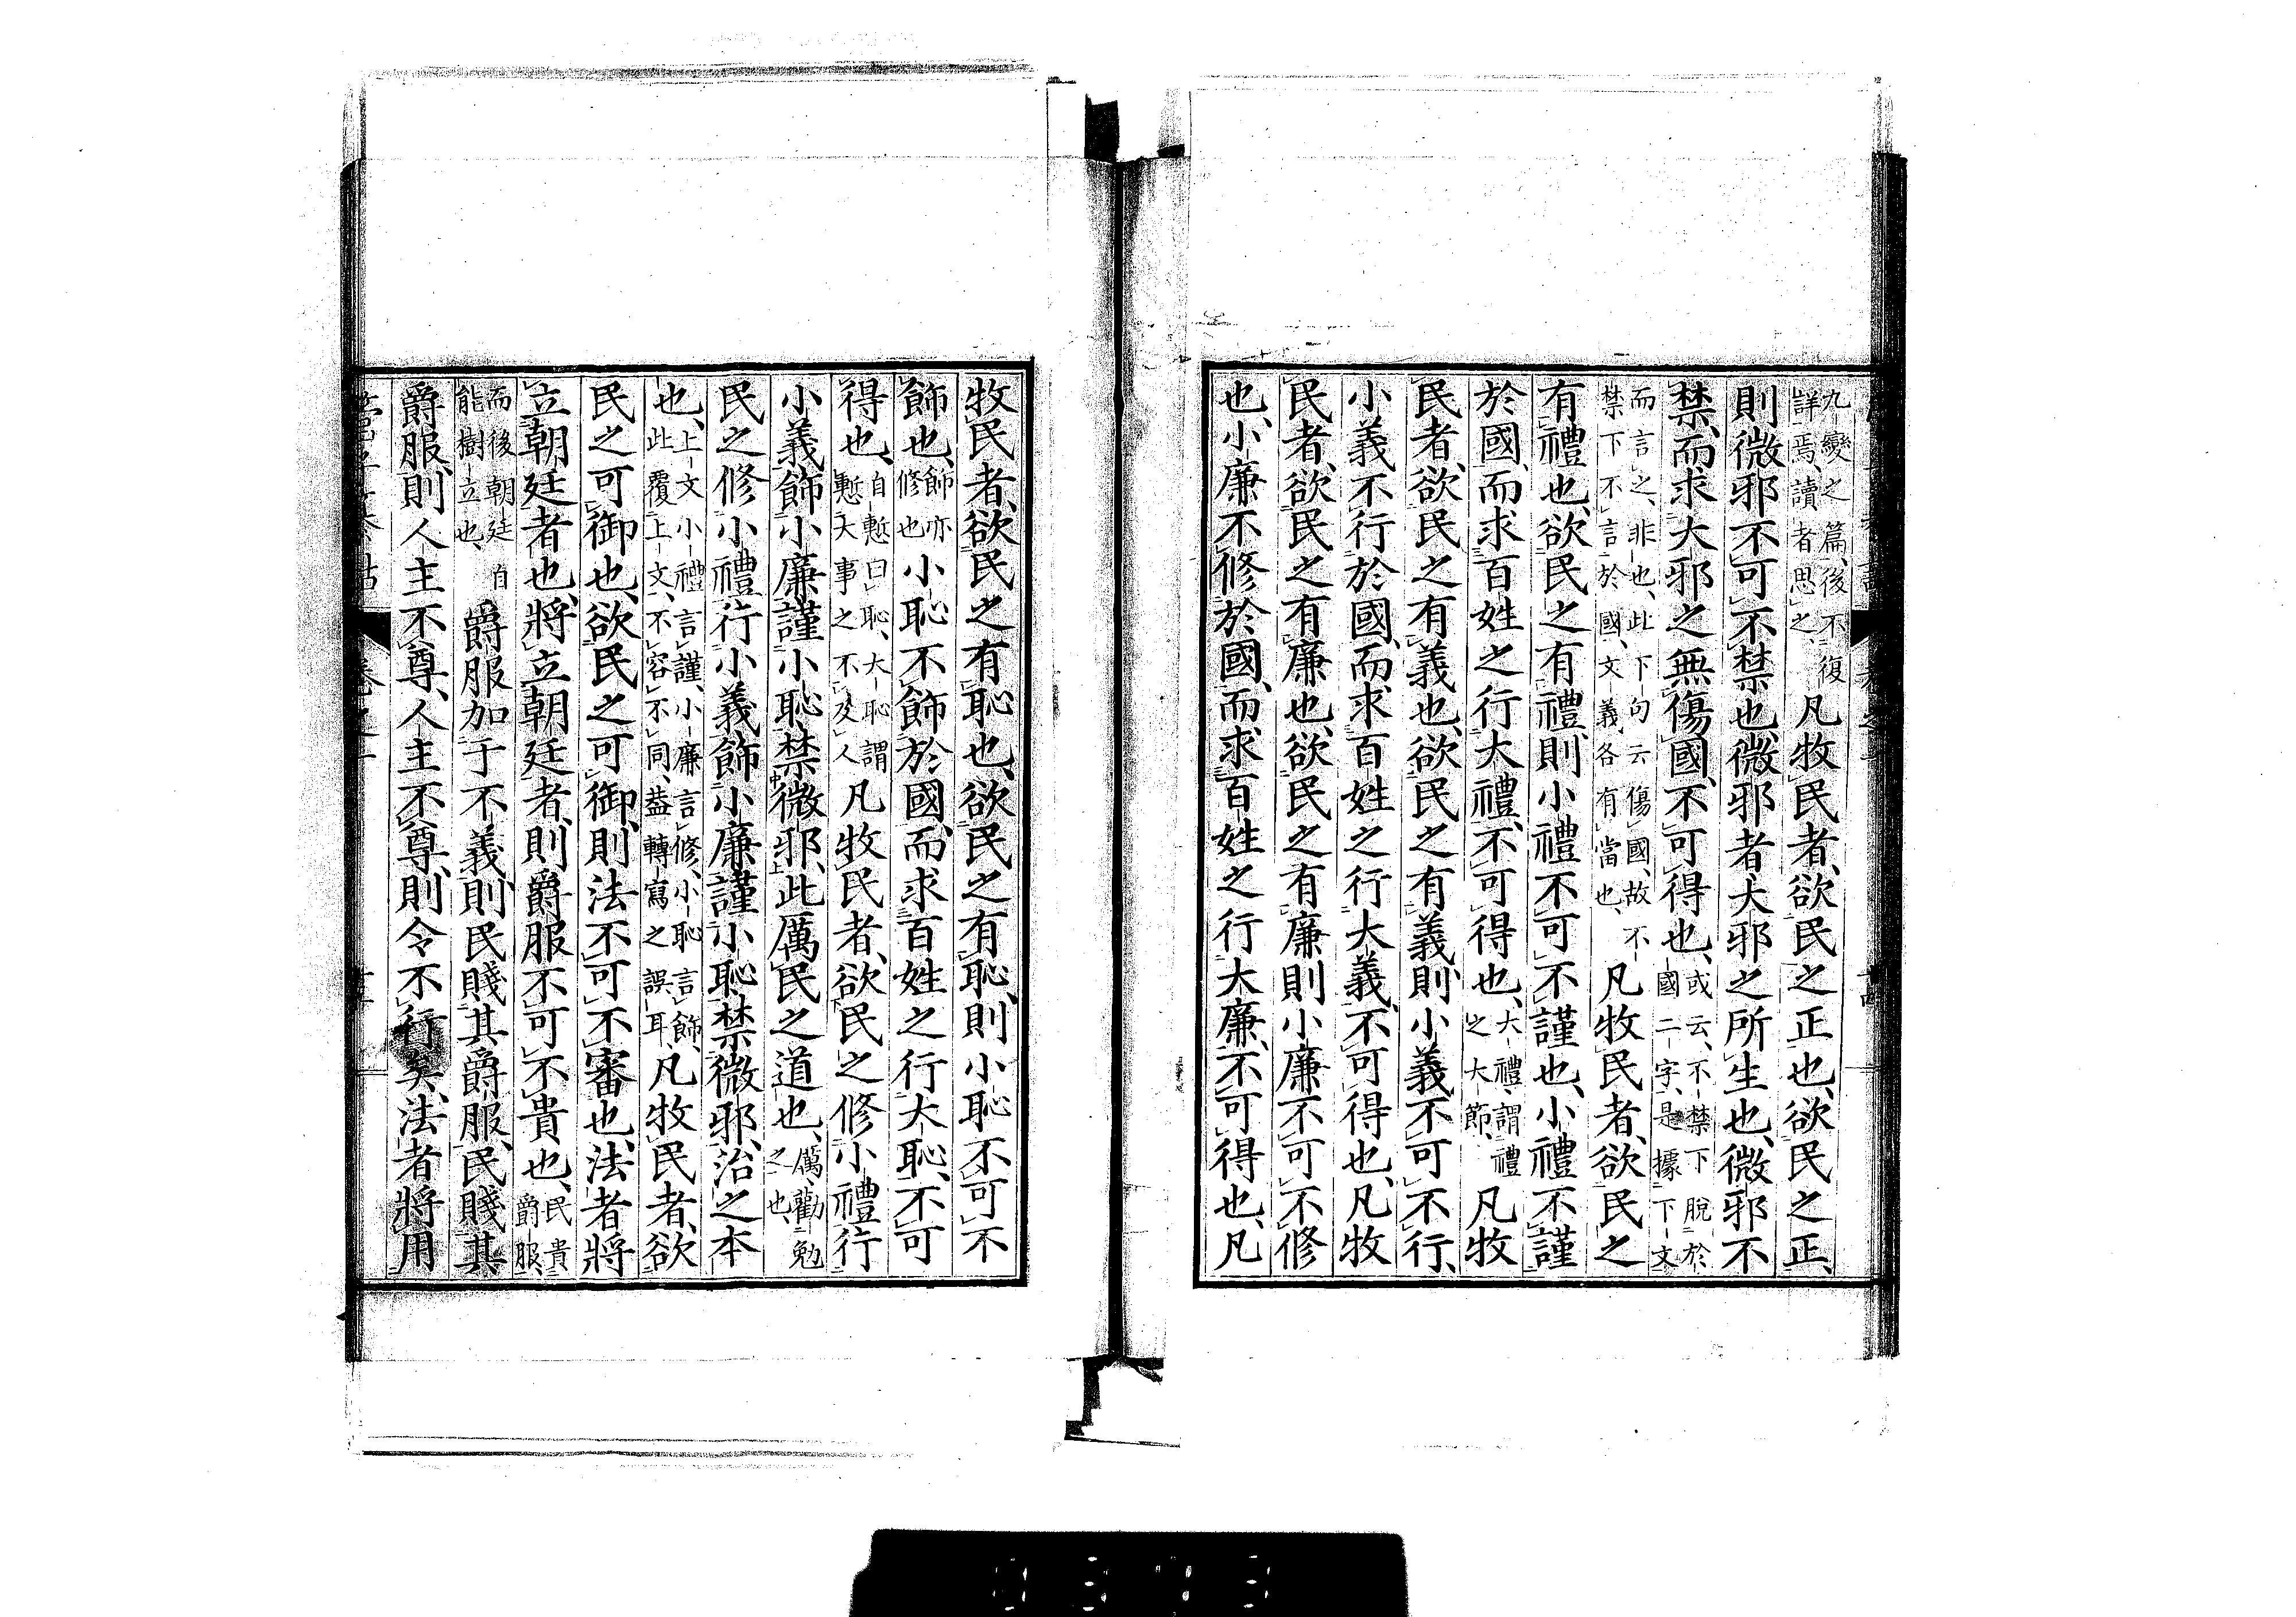 九變之篇、後不復
詳焉、讀者思之、凡牧民者、欲民之正也、欲民之正、
則微邪不可不禁也、微邪者、大邪之所生也、微邪不
禁、而求大邪之無傷國、不可得也、或云、不禁下脫於
國二字、是據下文
而言之、非也、此下句云傷國、故不
禁下不言於國、文義各有當也、凡牧民者、欲民之
有禮也、欲民之有禮、則小禮不可不謹也、小禮不謹
於國、而求百姓之行大禮、不可得也、大禮、謂禮
之大節、凡牧
民者、欲民之有義也、欲民之有義、則小義不可不行、
小義不行於國、而求百姓之行大義、不可得也、凡牧
民者、欲民之有廉也、欲民之有廉則小廉不可不修
也、小廉不修於國、而求百姓之行大廉、不可得也、凡
牧民者、欲民之有恥也、欲民之有恥、則小恥不可不
飾也、飾亦
修也小恥不飾於國、而求百姓之行大恥、不可
得也、自慙曰恥、大恥謂
慙大事之不及人凡牧民者、欲民之修小禮行
小義飾小廉謹小恥禁微邪、此厲民之道也、厲、勸勉
之也、
民之修小禮行小義飾小廉謹小恥禁微邪、治之本
也、上文小禮言謹、小廉言修、小恥言飾、
此覆上文、不容不同、葢轉寫之誤耳、凡牧民者、欲
民之可御也、欲民之可御、則法不可不審也、法者將
立朝廷者也、將立朝廷者、則爵服不可不貴也、民貴
爵服、
而後朝廷自
能樹立也、爵服加于不義、則民賤其爵服、民賤其
爵服、則人主不尊、人主不尊、則令不行矣、法者將用